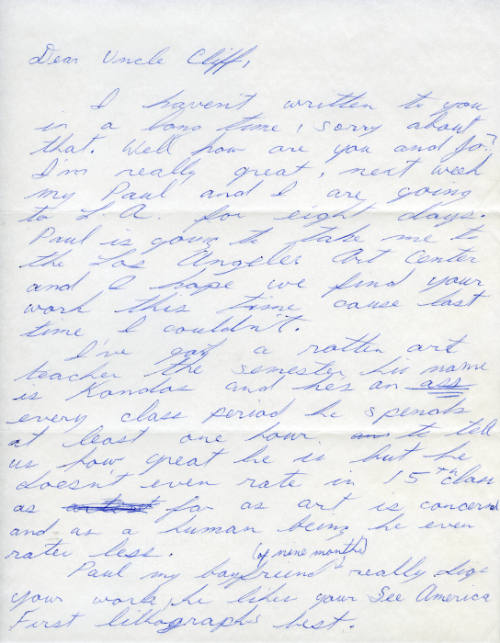 Dear Uncle Cliff,
I haven't written to you
in a long time, sorry about
that. Well how are you and Jo?
I'm really great, next week
my Paul and I are going
to L.A. for eight days.
Paul is going to take me to
the Los Angeles Art Center
and I hope we find your
work this time cause last
time I couldn't.
I've got a rotten art
teacher the semester his name
is Kondos and hes an ass
every class period he spends
at least one hour to tell
us how great he is but he
doesn't even rate in 15th class
as far as art is concerned
and as a human being he even
rates less.
(of nine months)
Paul my boyfriend really digs
your work, he likes your See America
First lithographs best.